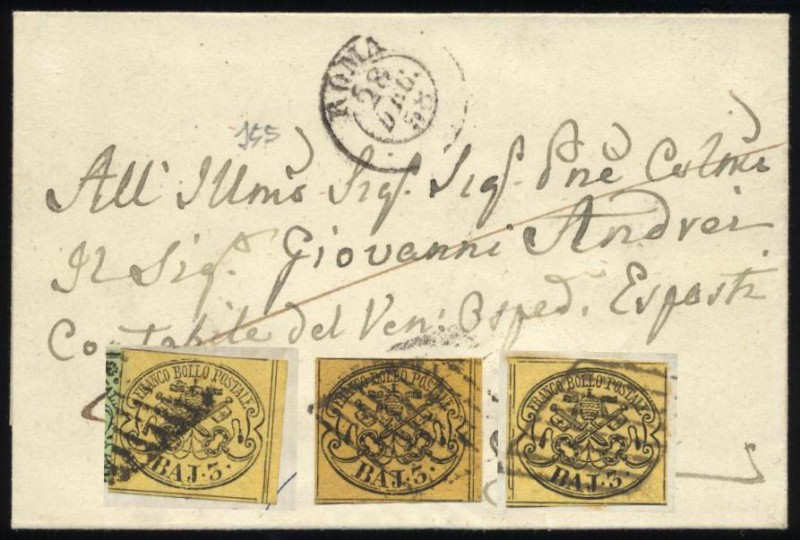 ROMA
28
DEC.
58
155
All' Illmo Sigr. Sigr. Pne Colmo
Il Sigr. Giovanni Andrei
Contabile del Ven: Osped. Esposti
FRANCO BOLLO POSTALE
BAJ. 3.
FRANCO BOLLO POSTALE
BAJ. 3.
FRANCO BOLLO POSTALE
BAJ. 3.